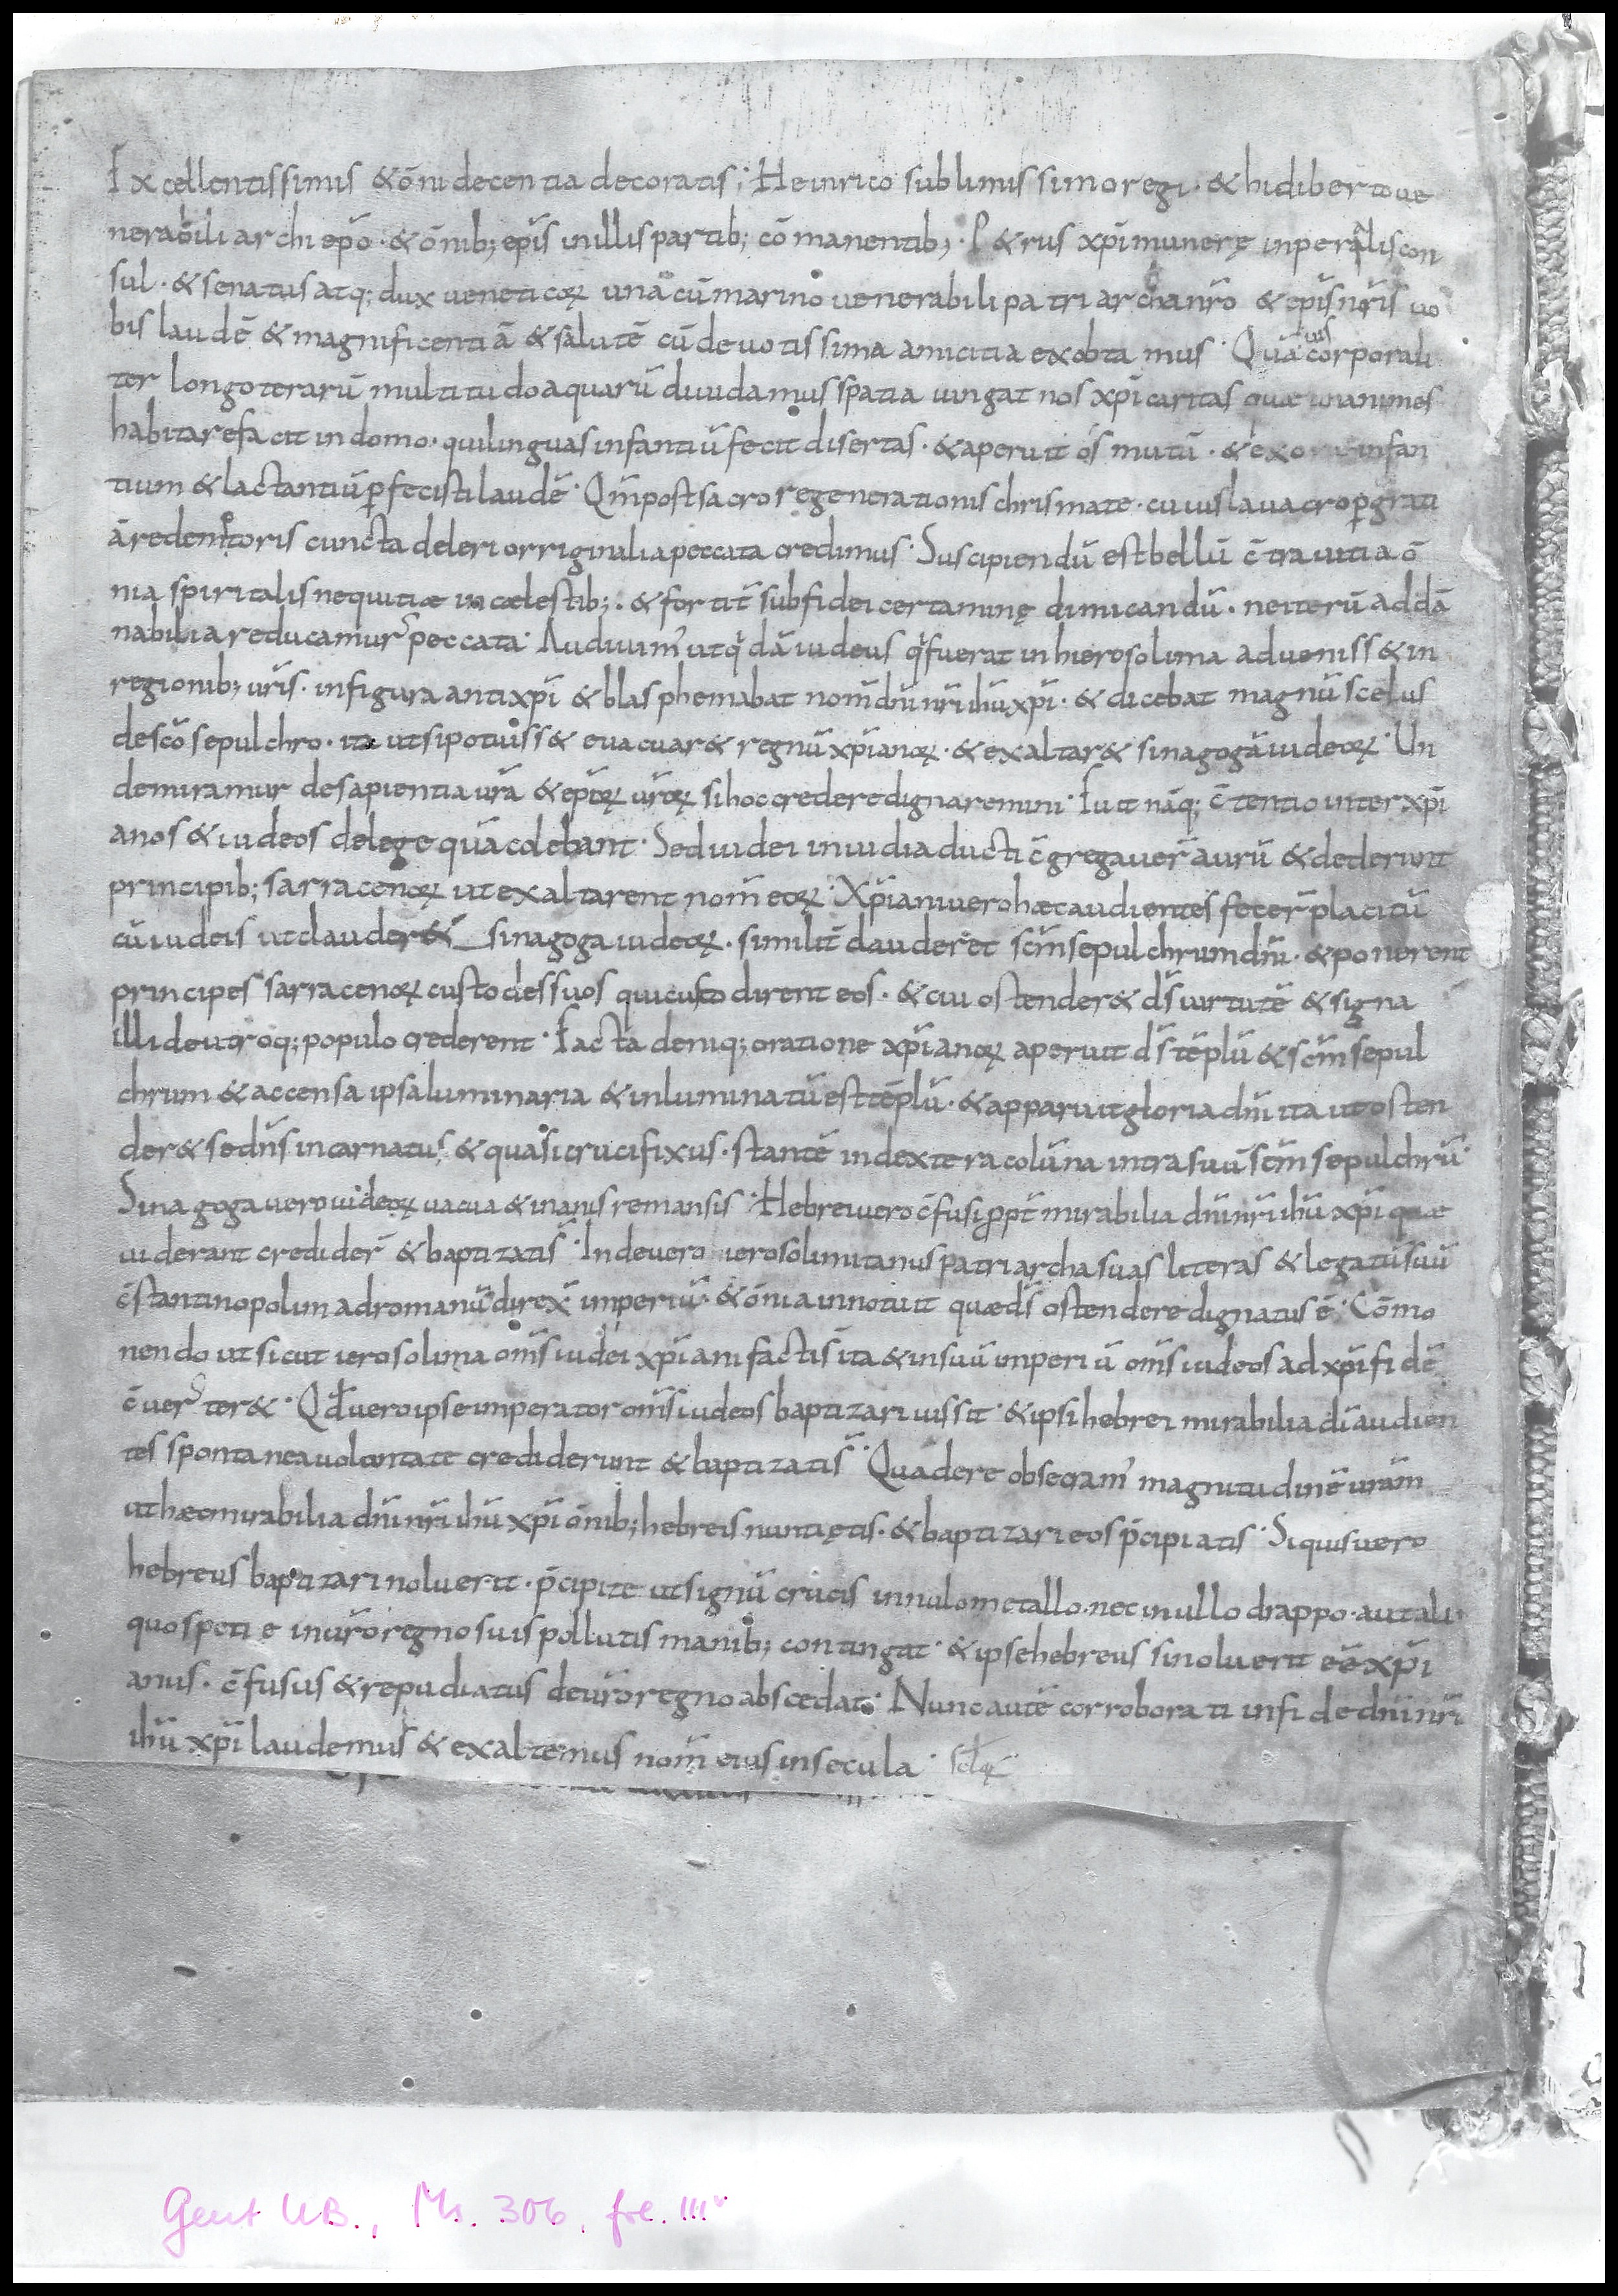 Excellentissimis & õni decentia decoratis; Heinrico sublimissimo regi · & hidiberto ue
nerabili archi ep̃o · & õnib; ep̃is in illis partib; cõmanentib; · P&rus xp̃i munerę inperialis con
sul · & senatus atq; dux ueneticoꝝ una cũ marino uenerabili patriarcha nr̃o & ep̃is nr̃is uo
bis laudẽ & magnificentiã & salutẽ cũ deuotissima amicitia exobtimus · Quãuis corporali
ter longo terarũ multitudo aquarũ diuidamus spatia iungat nos xp̃i caritas quæ unanimes
habitare facit in domo · qui linguas infantiũ fecit disertas · & aperuit os mutũ · & ex ore infan
tium & lactantiũ ꝑfecisti laudẽ · Qm̃ post sacro regenerationis chrismate · cuius lauacro ꝑ grati
ã redemtoris cuncta deleri orriginalia peccata credimus · Suscipiendũ est bellũ c̃tra uitia õ
nia spiritalis nequitiæ in cælestib; · & fortit̃ sub fidei certaminę dimicandũ · ne iterũ ad dã
nabilia reducamur peccata · Audiuim' ut qdã iudeus q fuerat in hierosolima adueniss& in
regionib; ur̃is · in figura antixp̃i & blasphemabat nom̃ dñi nr̃i ihũ xp̃i · & dicebat magnũ scelus
de sc̃o sepulchro · ita ut si potuiss& euacuar& regnũ xp̃ianoꝝ · & exaltar& sinagogã iudeoꝝ · Un
de miramur de sapientia ur̃a & ep̃oꝝ ur̃oꝝ si hoc credere dignaremini · Fuit nãq; c̃tentio inter xp̃i
anos & iudeos de lege quã colebant · Sed iudei inuidia ducti c̃gregauer̃ aurũ & dederunt
principib; sarracenoꝝ ut exaltarent nom̃ eoꝝ · Xp̃iani uero hæc audientes fecer̃ placitũ
cũ iudeis ut clauder& sinagoga iudeoꝝ · similit̃ clauderet sc̃m sepulchrum dñi · & ponerent
principes sarracenoꝝ custodes suos qui custodirent eos · & cui ostender& d̃s uirtutẽ & signa
illi de utroq; populo crederent · Facta deniq; oratione xp̃ianoꝝ aperuit d̃s tẽplũ & sc̃m sepul
chrum & accensa ipsa luminaria & inluminatũ est tẽplũ · & apparuit gloria dñi ita ut osten
der& se dñs incarnatus & quasi crucifixus · stantẽ in dextera colũna intra suũ sc̃m sepulchrũ ·
Sinagoga uero iudeoꝝ uacua & inanis remansis · Hebrei uero c̃fusi ꝓpt̃ mirabilia dñi nr̃i ihũ xp̃i quæ
uiderant credider̃ & baptizati s̃ · Inde uero ierosolimitanus patriarcha suas literas & legatũ suũ
c̃stantinopolim ad romanũ direx̃ imperiũ · & õnia innotuit quæ d̃s ostendere dignatus ẽ · Cõmo
nendo ut sicut ierosolima om̃s iudei xp̃iani facti s̃ ita & in suũ imperiũ om̃s iudeos ad xp̃i fidẽ
c̃uerter& · Qđ uero ipse imperator om̃s iudeos baptizari iussit · & ipsi hebrei mirabilia dĩ audien
tes spontanea uoluntate crediderunt & baptizati s̃ · Qua de re obsecram' magnitudinẽ ur̃am
ut hæc mirabilia dñi nr̃i ihũ xp̃i õnib; hebreis nuntiętis · & baptizari eos p̃cipiatis · Si quis uero
hebreus baptizari noluerit · p̃cipite ut signũ crucis in nulo metallo · nec in ullo drappo · aut ali
quo speti e in ur̃o regno suis pollutis manib; contingat · & ipse hebreus si noluerit eẽ xp̃i
anus · c̃fusus & repudiatus de ur̃o regno abscedat · Nunc autẽ corroborati in fide dñi nr̃i
ihũ xp̃i laudemus & exaltemus nom̃ eius in secula · scl̃oꝝ
Gent UB., Ms. 306, fol. III